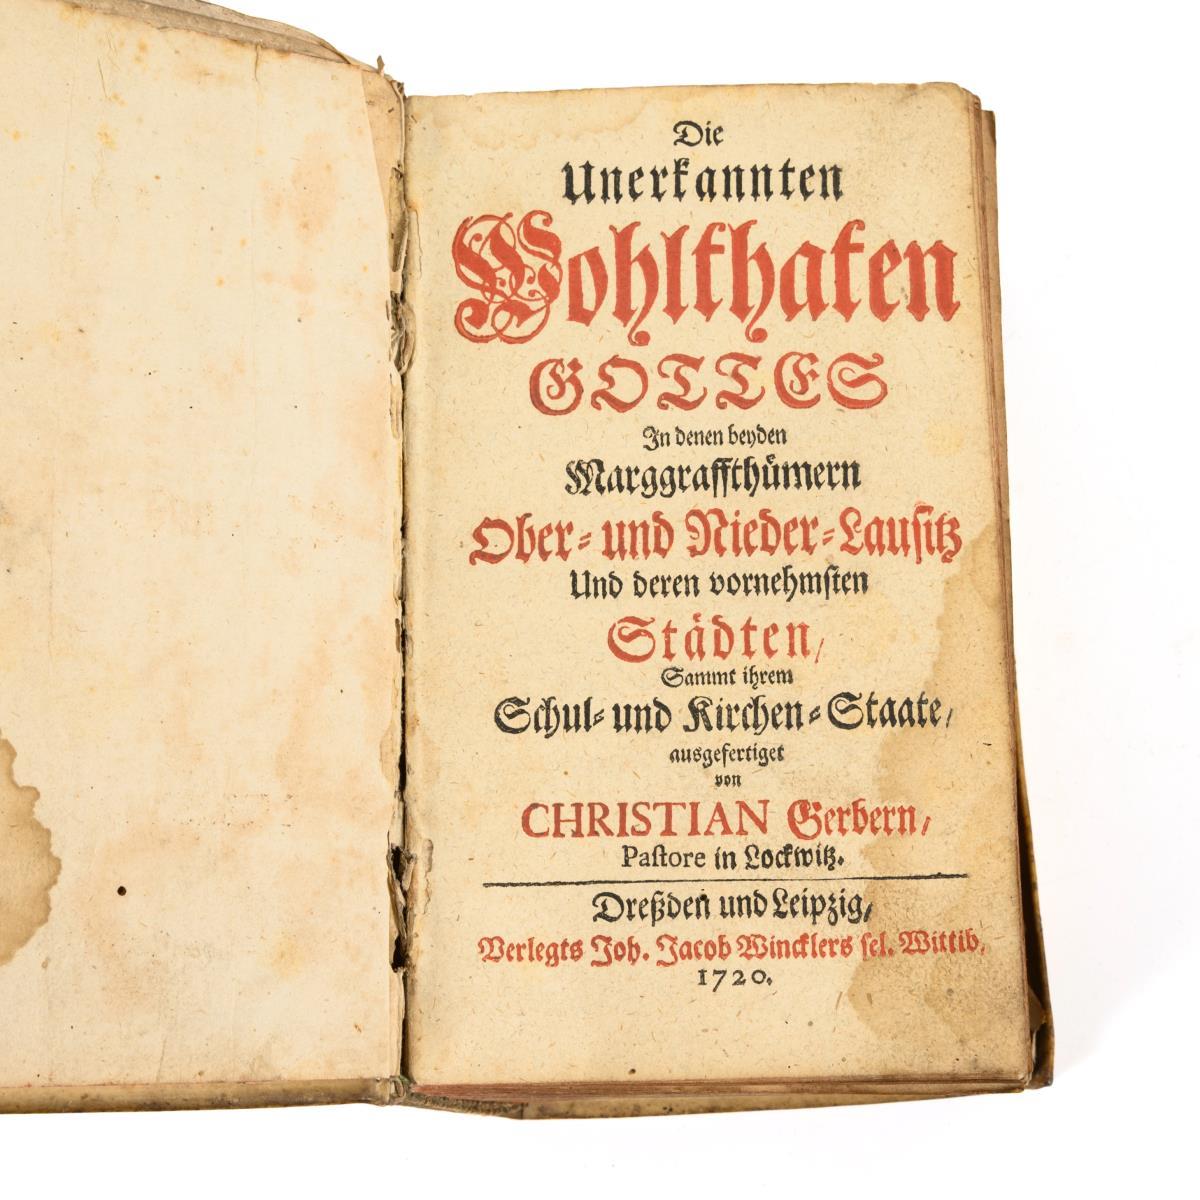 Die
Unerkannten
Wohlthaten
GOTTES
In denen beyden
Marggraffthümern
Ober- und Nieder-Lausitz
Und deren vornehmsten
Städten,
Sammt ihrem
Schul- und Kirchen-Staate,
ausgefertiget
von
CHRISTIAN Gerbern,
Pastore in Lockwitz.
Dreßden und Leipzig,
Verlegts Joh. Jacob Wincklers sel. Wittib,
1720.